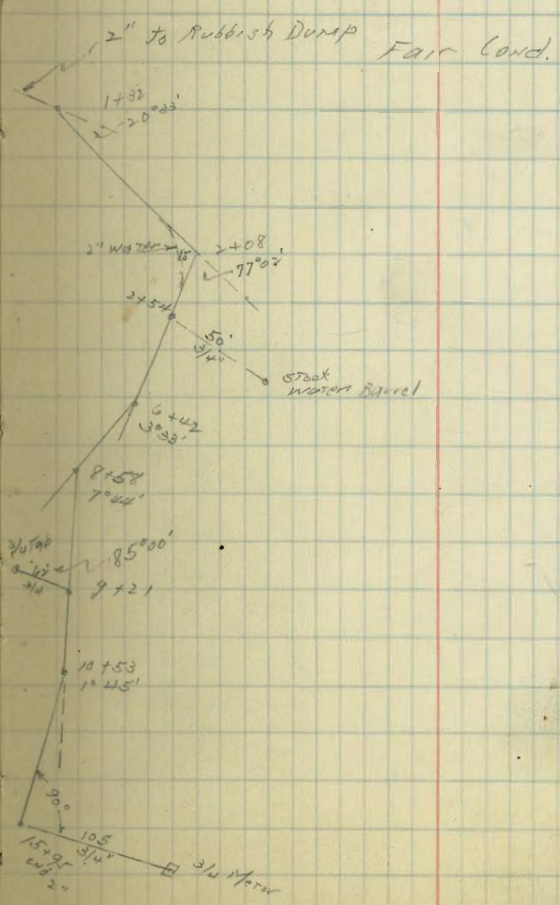 2" to Rubbish Dump
Fair Cond.
1+32
20°33'
2" water
15
2+08
77°02'
2+54
50'
3/4"
Stock
Water Barrel
6+42
3°33'
8+58
7°44'
3/4 Tap
85°00'
3/4
9+21
10+53
1°45'
90°
15+95
end
2"
105
3/4"
3/4 Meter